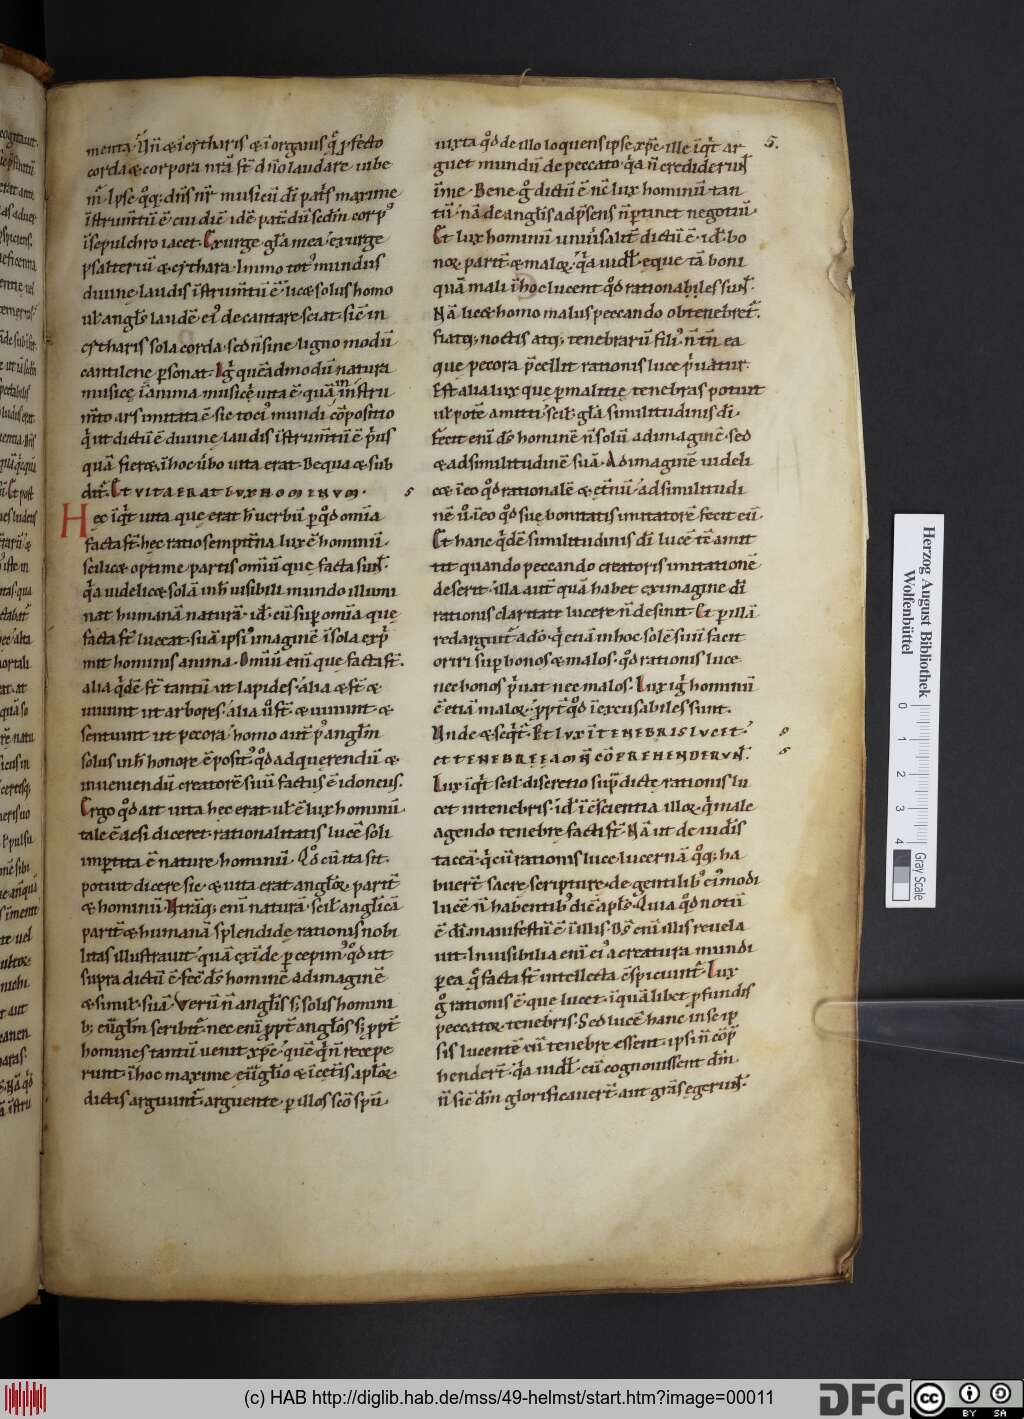 menta. Nū & ī cytharis & ī organis q̄ ꝑfecto
corda & corpora nr̄a st̄ dn̄o laudare iube
m̄. Ipse q̊q; dn̄s nr̄ musicū dī pat̄s maxime
īstrum̄tū ē. cui diē idē pat̄. dū sedīn corp᷒
ī sepulchro iacet. Exurge gl̄a mea. exurge
psalteriū & cythara. Immo tot᷒ mundus
diuinę laudis īstrum̄tū ē. licet solus homo
ul̄ angl̄s laudē ei᷒ decantare sciat. sic̄ in
cytharis sola corda. sed n̄ sine ligno modū
cantilenę ꝑsonat. Igr̄ quēadmodū natura
musicę ī anima musicę uita ē. quā in īstru
m̄to ars imitata ē. sic toci᷒ mundi cōpositio
q̄ ut dictū ē diuinę laudis īstrum̄tū ē. pr̄us
quā fieret. ī hoc u̇bo uita erat. Dequa & sub
dit̄. ET VITA ERAT LUX HOMINUM.
Hęc īq̄t uita que erat h̄ uerbū ꝑ q̊d om̄ia
facta st̄. hęc ratio sempit̄na lux ē hominū.
scilicet optime partis om̄iū quę facta sun̄.
q̄a uidelicet solā inh̄ uisibili mundo illumi
nat humanā naturā. id ē cū suꝑ om̄ia quę
facta st̄ luceat. suā ipsi᷒ imaginē ī sola exp̄
mit hominis anima. Om̄iū enī que facta st̄.
alia q̄dē st̄ tantū ut lapides. alia & st̄ &
uiuunt ut arbores. alia ū st̄ & uiuunt &
sentiunt ut pecora. homo aut̄ p᷒ angl̄m
solus inh̄ honore ē posit᷒. q̊d ad querendū &
inueniendū creatorē suū factus ē idoneus.
Ergo q̊d ait uita hęc erat. ul̄ ē lux hominū.
tale ē ac si diceret. rationalitatis lucē soli
impertita ē naturę hominū. Q̊d cū ita sit.
potuit dicere sic. & uita erat angl̄oꝝ parit̄
& hominū. Utrāq; enī naturā. scil̄ angl̄icā
parit̄ & humanā splendide rationis nobi
litas illustrauit. quā exīde ꝑcepim᷒. q̊d ut
supra dictū ē. fec̄ ds̄ hominē ad imaginē
& simil̄. suā. Verū n̄ angl̄is s; solis homini
b; eūgl̄m scribit̄. nec enī ꝓpt̄ angl̄os s; ꝓpt̄
homines tantū uenit xp̄c. quē q̄ n̄ recepe
runt. ī hoc maxime eūgl̄io & ī cet̄is apl̄oꝝ
dictis arguunt̄. arguente ꝑ illos scō sp̄u.
5.
iuxta q̊d de illo loquens ipse xp̄c. ille īq̄t ar
guet mundū de peccato. q̄a n̄ crediderun̄
ī me. Bene g̊ dictū ē n̄c lux hominū. tan
tū. nā de angl̄is ad p̄sens n̄ ꝑtinet negotiū.
Et lux hominū uniūsalit̄ dictū ē. id bo
noꝝ parit̄ & maloꝝ. q̄a uidl̄. eque tā boni
quā mali ī hoc lucent q̊d rationabiles sun̄.
Nā licet homo malus peccando obtenebret̄.
fiatq; noctis atq; tenebrarū fili᷒. n̄ tn̄ ea
que pecora p̄cellit rationis luce p̄uatur.
Est alia lux quę ꝑ malitię tenebras potuit
ul̄ potē amitti. scil̄ gl̄a similitudinis dī.
Fecit enī ds̄ hominē n̄ solū ad imaginē. sed
& ad similitudinē suā. Ad imaginē uideli
cet. ī eo q̊d rationalē & et̄nū. ad similitudi
nē ū. ī eo q̊d suę bonitatis imitatorē fecit eū.
Et hanc q̄dē similitudinis dī lucē tē amit
tit quando peccando creatoris imitationē
deserit. illa aut̄ quā habet ex imagine dī
rationis claritate lucere n̄ desinit. Et ꝑ illā
redarguit̄ a dō. q̄ etiā in hoc solē suū facit
oriri suꝑ bonos & malos. q̊d rationis luce
nec bonos p̄uat nec malos. Lux igr̄ hominū
ē etiā maloꝝ. ꝓpt̄ q̊d īexcusabiles sunt.
Unde & seq̄t̄. ET LUX Ī TENEBRIS LUCET.
ET TENEBRE EAM N̄ CŌPREHENDERUN̄.
Lux īq̄t scil̄ discretio sup̄dictę rationis lu
cet in tenebris. id ī c̄scientia illoꝝ. q̄ male
agendo tenebre facti st̄. Nā ut de iudeīs
taceā. q̄ cū rationis luce lucernā q̊q; ha
buert̄ sacre scripture. de gentilib᷒ ei᷒modi
lucē n̄ habentib᷒ dic̄ apl̄s. Quia q̊d notū
ē dī. manifestū ē ī illis. Ds̄ enī illis reuela
uit. Inuisibilia enī ei᷒ a creatura mundi
ꝑ ea q̄ facta st̄ intellecta c̄spiciunt̄. Lux
g̊ rationis ē quę lucet. ī quā libet ꝓfundis
peccatoꝝ tenebris. Sed lucē hanc in se ip
sis lucentē cū tenebre essent. ipsi n̄ cōp̄
hendert̄. q̄a uidl̄. cū cognouissent dm̄.
n̄ sic̄ dm̄ glorificauert̄. aut grās egerun̄.
Herzog August Bibliothek
Wolfenbüttel
0 1 2 3 4
Gray Scale
(c) HAB http://diglib.hab.de/mss/49-helmst/start.htm?image=00011
DFG
cc BY SA